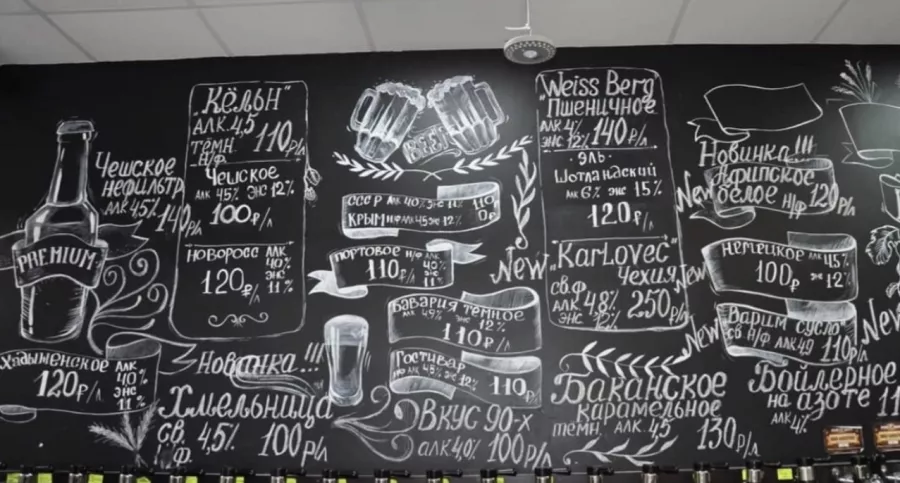 PREMIUM
Чешское
нефильтр
алк 4,5% 140 р/л
Хадыженское
120 р/л
АЛК 40% ЭНС 11%
"КЁЛЬН"
АЛК. 4,5
ТЁМН. Н/Ф 110 р/л
Чешское
АЛК 45% ЭНС 12%
100 р/л
НОВОРОСС АЛК 40% ЭНС 11%
120 р/л
Новинка!!!
Хмельница
св. ф. 4,5% 100 р/л
BEER
СССР АЛК 40% ЭНС 11% 110
КРЫМ Н/Ф АЛК 45 ЭНС 12%
ПОРТОВОЕ Н/Ф АЛК 40% ЭНС 11%
110 р/л
New
БАВАРИЯ ТЁМНОЕ
АЛК 49% 12%
110 р/л
Гостивар
АЛК 45% ЭНС 12% 110
Вкус 90-х
алк 4,0% 100 р/л
Weiss Berg
"Пшеничное"
АЛК 4% ЭНС 12% 140 р/л
ЭЛЬ
Шотландский
АЛК 6% ЭНС 15%
120 р/л
"Karlovec"
Чехия
св.ф. АЛК 4,8% ЭНС. 12% 250 р/л
Баканское
карамельное
темн. АЛК 4,5 130 р/л
Новинка!!!
New
Афипское
белое н/ф 120 р/л
New
НЕМЕЦКОЕ АЛК 45%
100 р/л ЭНС 12%
New
Варим сусло
св н/ф АЛК 49 110 р/л
New
Бойлерное
на азоте
АЛК 4%